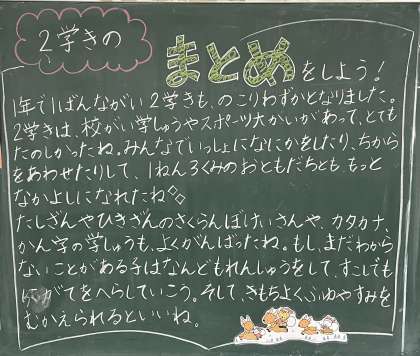 2学きの
まとめをしよう!
1年で1ばんながい2学きも、のこりわずかとなりました。
2学きは、校がい学しゅうやスポーツ大かいがあって、とても
たのしかったね。みんなでいっしょになにかをしたり、ちから
をあわせたりして、1ねん3くみのおともだちとも、もっと
なかよしになれたね
たしざんやひきざんのさくらんぼけいさんや、カタカナ、
かん字の学しゅうも、よくがんばったね。もし、まだわから
ないことがある子はなんどもれんしゅうをして、すこしでも
にがてをへらしていこう。そして、きもちよくふゆやすみを
むかえられるといいね。